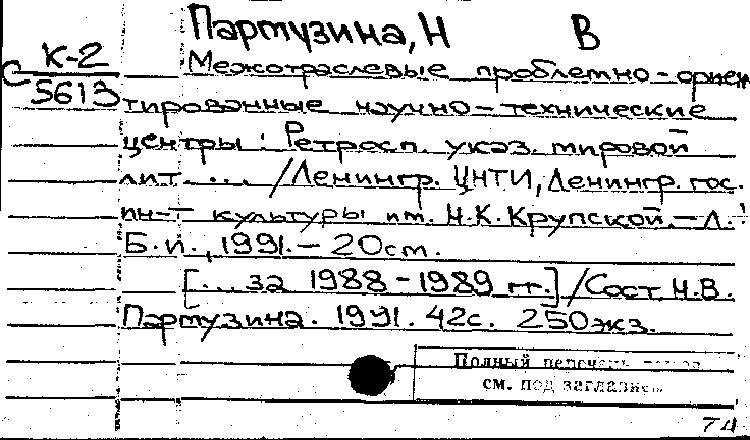 Партузина, Н В
К-2
С
5613
Межотраслевые проблемно-ориен
тированные научно-технические
центры : Ретросп. указ. мировой
лит. ... / Ленингр. ЦНТИ, Ленингр. гос.
ин-т культуры им. Н.К. Крупской. - Л. :
Б.и., 1991. - 20 см.
[... за 1988-1989 гг.] / Сост. Н.В.
Партузина. 1991. 42с. 250экз.
Полный перечень
см. под заглавием
74